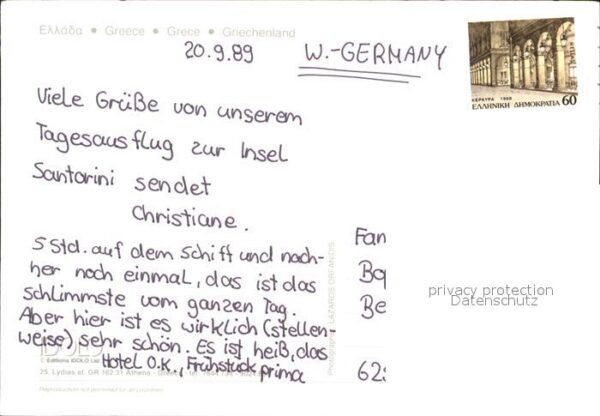 Ελλάδα • Greece • Grece • Griechenland
20.9.89 W.-GERMANY
ΚΕΡΚΥΡΑ 1988
ΕΛΛΗΝΙΚΗ ΔΗΜΟΚΡΑΤΙΑ 60
Viele Grüße von unserem
Tagesausflug zur Insel
Santorini sendet
Christiane.
5 Std. auf dem Schift und nach-
her noch einmal, das ist das
schlimmste vom ganzen Tag.
Aber hier ist es wirklich (stellen-
weise) sehr schön. Es ist heiß, das
Hotel O.K., Frühstück prima
Fan
Be
privacy protection
Datenschutz
Photographer: LAZAROS ORFANIDIS
25, Lydias st. GR 162 31 Athens - Greece
Reproduction not permitted for all countries